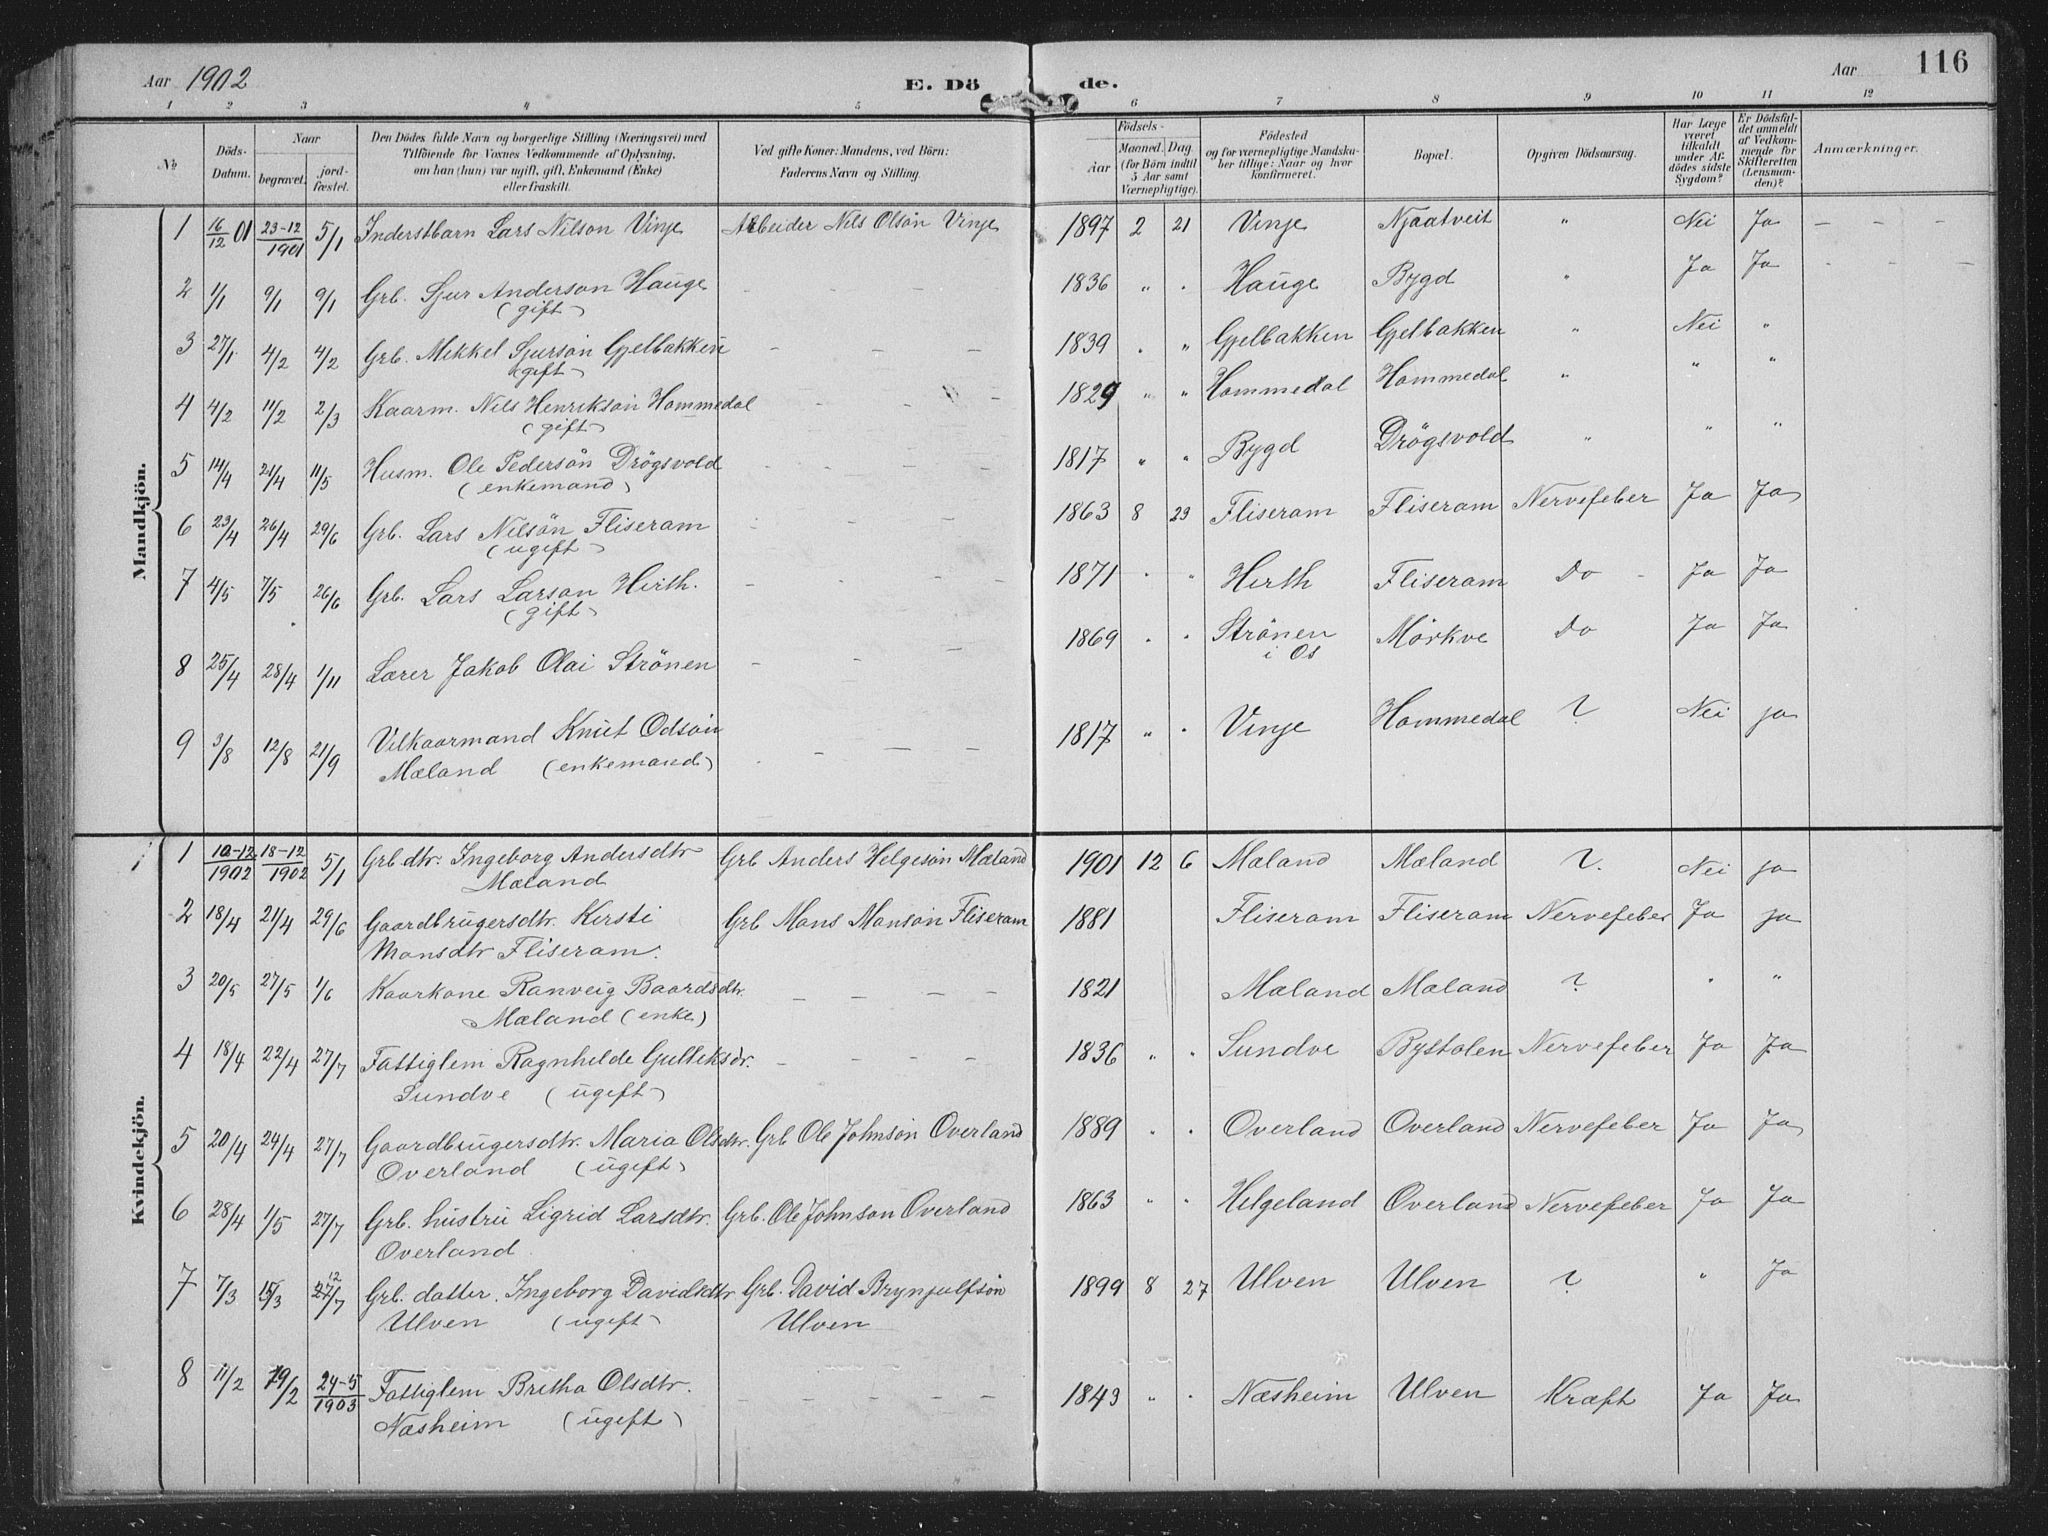 Aar 1902 E. Dö de. Aar 116
1 2 3 4 5 6 7 8 9 10 11 12
No
Döds-Datum.
Naar
begravet. jord-fæstet.
Den Dödes fulde Navn og borgerlige Stilling (Næringsvei) med
Tilföiende for Voxnes Vedkommende af Oplysning,
om han (hun) var ugift, gift, Enkemand (Enke)
eller fraskilt.
Ved gifte Koner: Mandens, ved Börn:
Faderens Navn og Stilling.
Födsels-
Aar Maaned. Dag.
(for Börn indtil
5 Aar samt
Værnepligtige).
Födested
og for værnepligtige Mandsku-
ber tillige: Naar og hvor
konfirmeret.
Bopæl.
Opgiven Dödsaarsag.
Har Læge
været
tilkaldt
under Af-
dödes sidste
Sygdom?
Er Dödsfal-
det anmeldt
af Vedkom-
mende for
Skifteretten
(Lensman-
den)?
Anmærkninger.
Mandkjön.
1 16/12 01 23-12/1901 5/1 Inderstbarn Lars Nilson Vinje Arbeider Nils Olsön Vinje 1897 2 21 Vinje Njaatveit " Nei Ja – – –
2 1/1 9/1 9/1 Grb. Sjur Anderson Hauge – – – 1836 " " Hauge Bygd " Ja Ja – – –
(gift)
3 27/1 4/2 4/2 Grb. Mikkel Sjursön Gjelbakken – – – 1839 " " Gjelbakken Gjelbakken " Nei "
(gift)
4 4/2 11/2 2/3 Kaarm. Nils Henrikson Hommedal – – – 1829 " " Hommedal Hommedal " " "
(gift)
5 14/4 21/4 11/5 Husm. Ole Pedersön Drögsvold – – – 1817 " " Bygd Drögsvold " " "
(enkemand)
6 23/4 26/4 29/6 Grb. Lars Nilsön Fliseram – – – 1863 8 23 Fliseram Fliseram Nervefeber Ja Ja
(ugift)
7 4/5 7/5 26/6 Grb. Lars Larson Hirth. – – – 1871 " " Hirth Fliseram Do – Ja Ja
(gift)
8 25/4 28/4 1/11 Lærer Jakob Olai Strönen – – – 1869 " " Strönen Mörkve Do Ja Ja
i Os
9 3/8 12/8 21/9 Vilkaarmand Knut Odsön – – – 1817 " " Vinje Hommedal ? Nei ja
Mæland (enkemand)
Kvindekjön.
1 10-12/1902 18-12/1902 5/1 Grb. dtr. Ingeborg Andersdtr Grb Anders Helgesön Mæland 1901 12 6 Mæland Mæland ? Nei ja
Mæland
2 18/4 21/4 29/6 Gaardbrugersdtr. Kirsti Grb Mons Monsön Fliseram 1881 Fliseram Fliseram Nervefeber Ja ja
Monsdtr Fliseram.
3 20/5 27/5 1/6 Kaarkone Ranveig Baardsdtr. – – – 1821 Mæland Mæland ? " "
Mæland (enke)
4 18/4 22/4 27/7 Fattiglem Ragnhilde Gulleiksdr. – – – 1836 " " Sundve Bystolen Nervefeber Ja Ja
Sundve (ugift)
5 20/4 24/4 27/7 Gaardbrugersdtr. Maria Olsdtr. Grb Ole Johnsön Overland 1889 " " Overland Overland Nervefeber Ja Ja
Overland (ugift)
6 28/4 1/5 27/7 Grb. hustru Sigrid Larsdtr. Grb. Ole Johnson Overland 1863 " " Helgeland Overland Nervefeber Ja Ja
Overland
7 7/3 15/3 12/7 Grb. datter. Ingeborg Davidsdtr Grb. David Brynjulfsön 1899 8 27 Ulven Ulven ? " Ja
Ulven (ugift) Ulven
8 11/2 19/2 24-5/1903 Fattiglem Britha Olsdtr. – – – 1843 " " Næsheim Ulven Kræft Ja Ja
Næsheim (ugift)